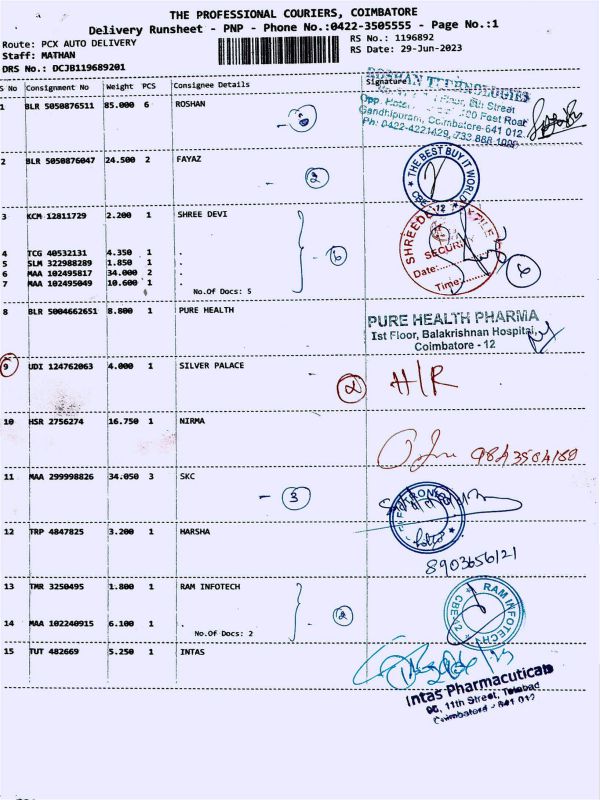 THE PROFESSIONAL COURIERS, COIMBATORE
Delivery Runsheet - PNP - Phone No.:0422-3505555 - Page No.:1
Route: PCX AUTO DELIVERY
RS No.: 1196892
Staff: MATHAN
RS Date: 29-Jun-2023
DRS No.: DCJB119689201
S No Consignment No Weight PCS Consignee Details Signature
1 BLR 5050876511 85.000 6 ROSHAN
ROSHAN TECHNOLOGIES
Floor, 6th Street
Opp. Hotel 100 Feet Road
Gandhipuram, Coimbatore-641 012
Ph: 0422-4221429, 733 888 1000
2 BLR 5050876047 24.500 2 FAYAZ
- 2
THE BEST BUY IT WORLD
CBE-12
3 KCM 12811729 2.200 1 SHREE DEVI
4 TCG 40532131 4.350 1 .
5 SLM 322988289 1.850 1 .
6 MAA 102495817 34.000 2 .
7 MAA 102495049 10.600 1 .
No.Of Docs: 5
- 6
SECURITY
Date:
Time:
6
8 BLR 5004662651 8.800 1 PURE HEALTH
PURE HEALTH PHARMA
Ist Floor, Balakrishnan Hospital,
Coimbatore - 12
9 UDI 124762063 4.000 1 SILVER PALACE
H/R
10 HSR 2756274 16.750 1 NIRMA
11 MAA 299998826 34.050 3 SKC
- 3
12 TRP 4847825 3.200 1 HARSHA
8903656121
13 TMR 3250495 1.800 1 RAM INFOTECH
14 MAA 102240915 6.100 1 .
No.Of Docs: 2
- 2
RAM INFOTECH
CBE-12
15 TUT 482669 5.250 1 INTAS
Intas Pharmaceuticals
11th Street, Tatabad
Coimbatore - 641 012